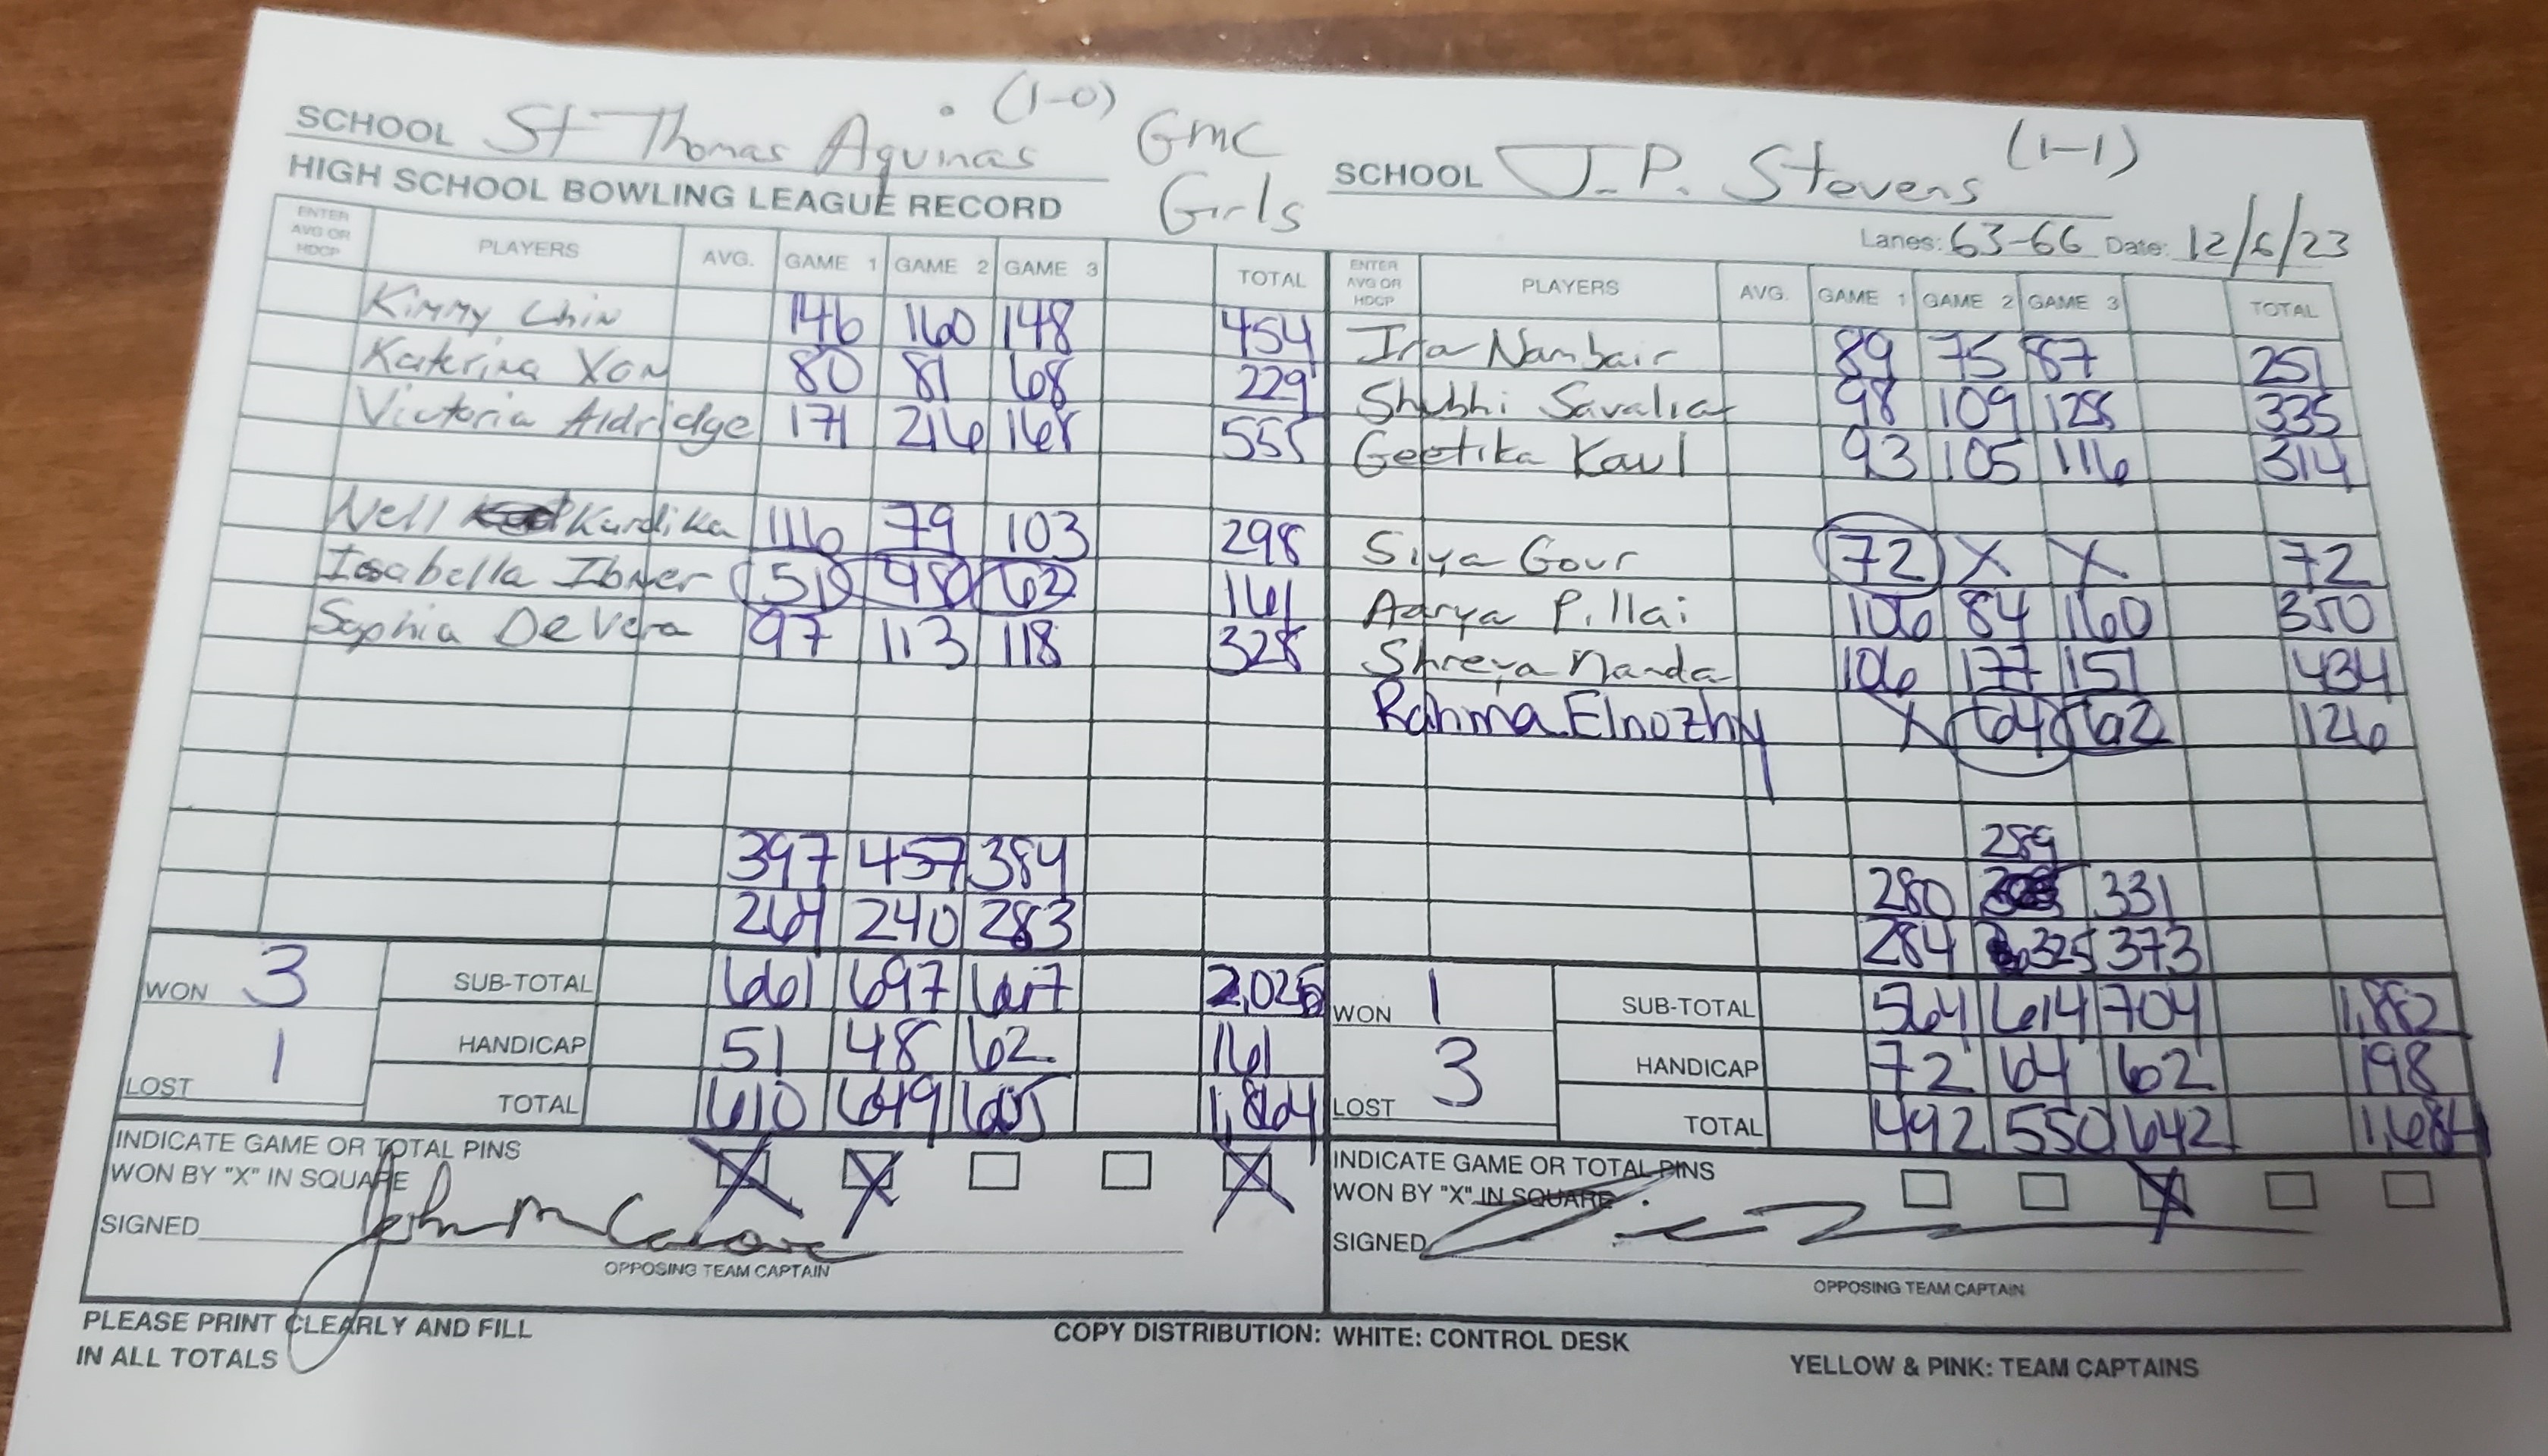 SCHOOL St Thomas Aquinas (1-0) GMC Girls
HIGH SCHOOL BOWLING LEAGUE RECORD
ENTER AVG OR HDCP PLAYERS AVG. GAME 1 GAME 2 GAME 3 TOTAL
Kimmy Chin 146 160 148 454
Katerina Yon 80 81 68 229
Victoria Aldridge 171 216 168 555
Nell Kurdika 116 79 103 298
Isabella Ibner 51 48 62 161
Sophia De Vera 97 113 118 328
397 457 384
264 240 283
WON 3 SUB-TOTAL 661 697 667 2,025
HANDICAP 51 48 62 161
LOST 1 TOTAL 610 649 605 1,864
INDICATE GAME OR TOTAL PINS
WON BY "X" IN SQUARE X X X
SIGNED
OPPOSING TEAM CAPTAIN
SCHOOL J.P. Stevens (1-1)
Lanes: 63-66 Date: 12/6/23
ENTER AVG OR HDCP PLAYERS AVG. GAME 1 GAME 2 GAME 3 TOTAL
Ira Nambair 89 75 87 251
Shubhi Savalia 98 109 128 335
Geetika Kaul 93 105 116 314
Siya Gour 72 X X 72
Aarya Pillai 106 84 160 350
Shreya Nanda 106 177 151 434
Rahma Elnozhy X 64 62 126
289
280 331
284 325 373
WON 1 SUB-TOTAL 564 614 704 1,882
HANDICAP 72 64 62 198
LOST 3 TOTAL 492 550 642 1,684
INDICATE GAME OR TOTAL PINS
WON BY "X" IN SQUARE X
SIGNED
OPPOSING TEAM CAPTAIN
PLEASE PRINT CLEARLY AND FILL
IN ALL TOTALS
COPY DISTRIBUTION: WHITE: CONTROL DESK
YELLOW & PINK: TEAM CAPTAINS